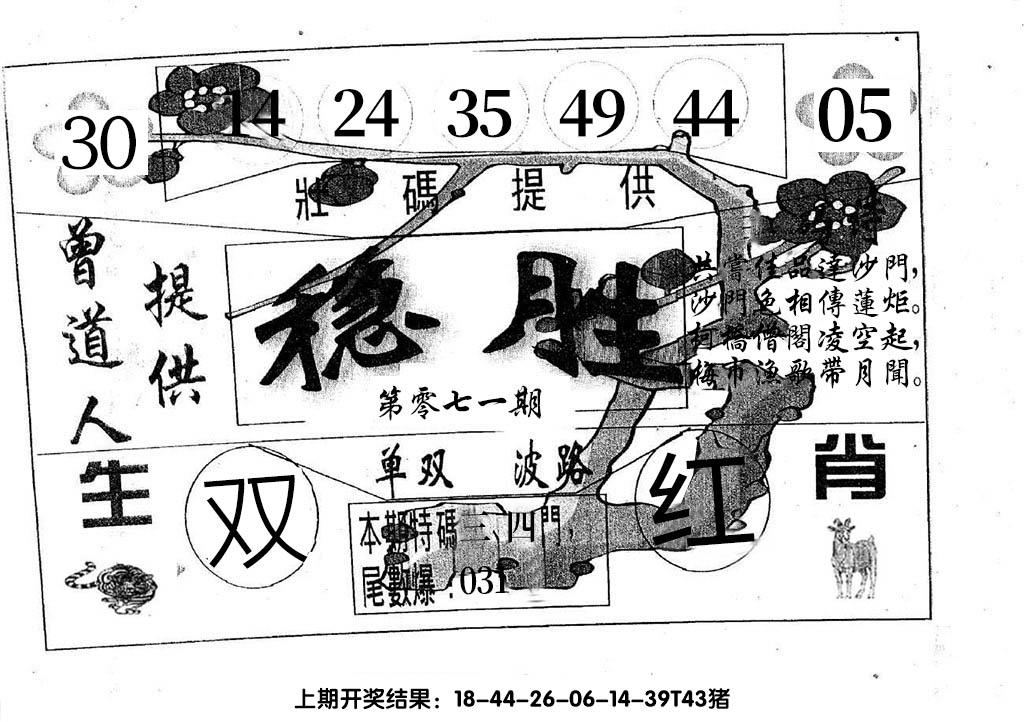 30 14 24 35 49 44 05
壯碼提供
曾道人
提供
稳胜
第零七一期
共嘗佳品達沙門，
沙門色相傳蓮炬。
柯橋僧閣凌空起，
梅市漁歌帶月聞。
单双 波路
生肖
双 红
本期特碼三、四門，
尾數爆：031
上期开奖结果：18-44-26-06-14-39T43猪